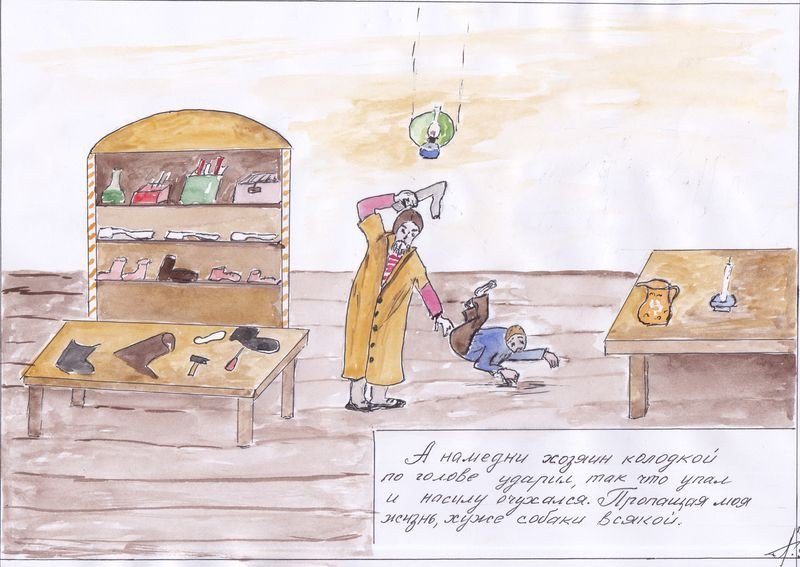 А намедни хозяин колодкой
по голове ударил, так что упал
и насилу очухался. Пропащая моя
жизнь, хуже собаки всякой.